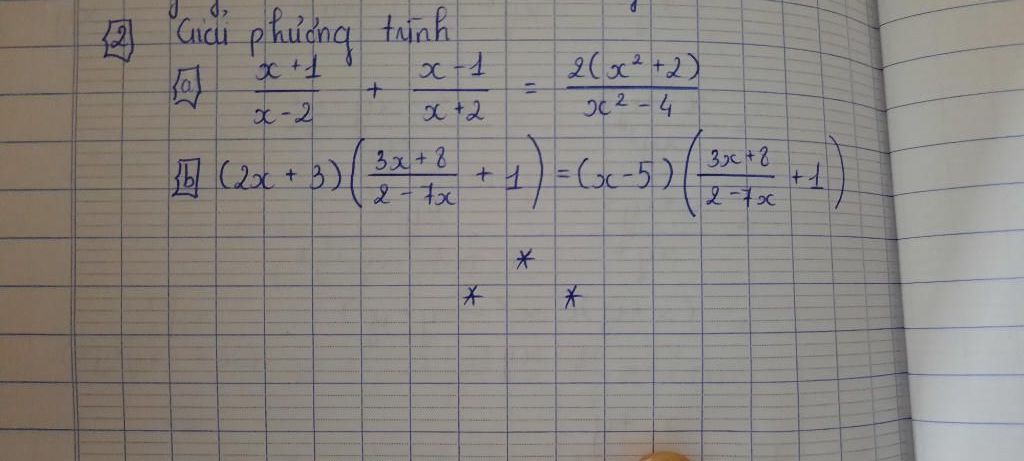 2 Giải phương trình
a (x + 1)/(x - 2) + (x - 1)/(x + 2) = 2(x² + 2)/(x² - 4)
b (2x + 3)((3x + 8)/(2 - 7x) + 1) = (x - 5)((3x + 8)/(2 - 7x) + 1)
*
* *